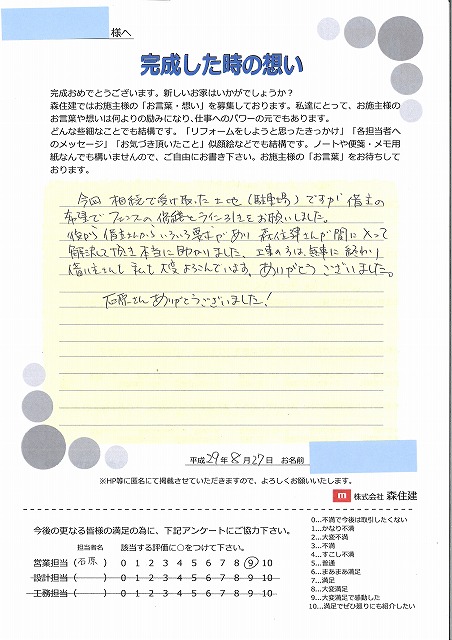 様へ
完成した時の想い
完成おめでとうございます。新しいお家はいかがでしょうか？
森住建ではお施主様の「お言葉・想い」を募集しております。私達にとって、お施主様の
お言葉や想いは何よりの励みになり、仕事へのパワーの元でもあります。
どんな些細なことでも結構です。「リフォームをしようと思ったきっかけ」「各担当者へ
のメッセージ」「お気づき頂いたこと」似顔絵などでも結構です。ノートや便箋・メモ用
紙なんでも構いませんので、ご自由にお書き下さい。お施主様の「お言葉」をお待ちして
おります。
今回 相続で受け取った土地（駐車場）ですが 借主の
希望でフェンスの修繕とライン引きをお願いしました。
後から借主さんからいろいろ要求があり 森住建さんが間に入って
解決して頂き本当に助かりました。工事の方は、無事に終わり
借り主さんも 私も大変よろこんでいます。ありがとうございました。
石原さんありがとうございました！
平成29年8月27日 お名前
※HP等に匿名にて掲載させていただきますので、よろしくお願いいたします。
m 株式会社 森住建
今後の更なる皆様の満足の為に、下記アンケートにご協力下さい。
担当者名 該当する評価に○をつけて下さい。
営業担当（石原） 0 1 2 3 4 5 6 7 8 9 10
設計担当（ ） 0 1 2 3 4 5 6 7 8 9 10
工務担当（ ） 0 1 2 3 4 5 6 7 8 9 10
0…不満で今後は取引したくない
1…かなり不満
2…大変不満
3…不満
4…すこし不満
5…普通
6…まあまあ満足
7…満足
8…大変満足
9…大変満足で感動した
10…満足でぜひ廻りにも紹介したい